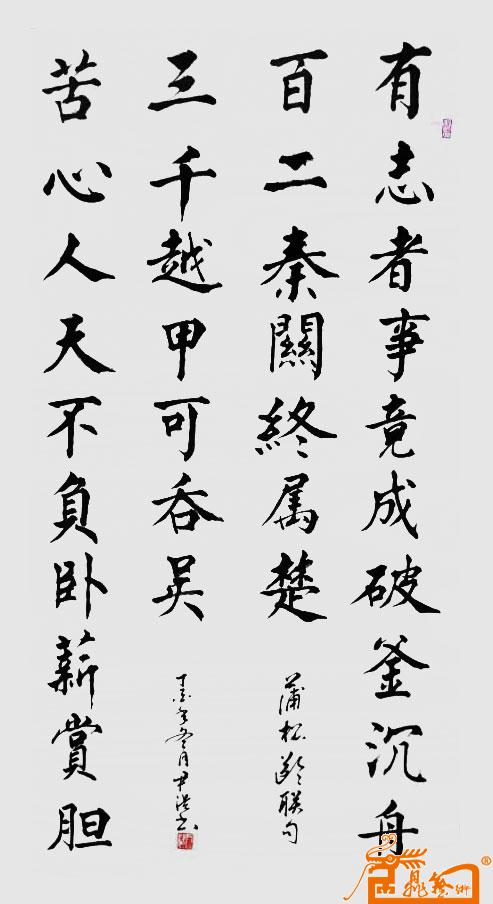 有志者事竟成破釜沉舟
百二秦關終属楚
蒲松龄联句
三千越甲可吞吴
苦心人天不負卧薪賞胆